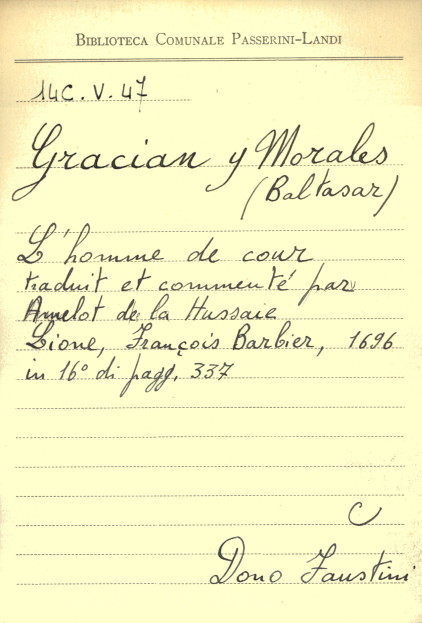 BIBLIOTECA COMUNALE PASSERINI-LANDI
14C.V.47
Gracian y Morales
(Baltasar)
L'homme de cour
traduit et commenté par
Amelot de la Hussaie
Lione, François Barbier, 1696
in 16° di pagg. 337
C
Dono Faustini